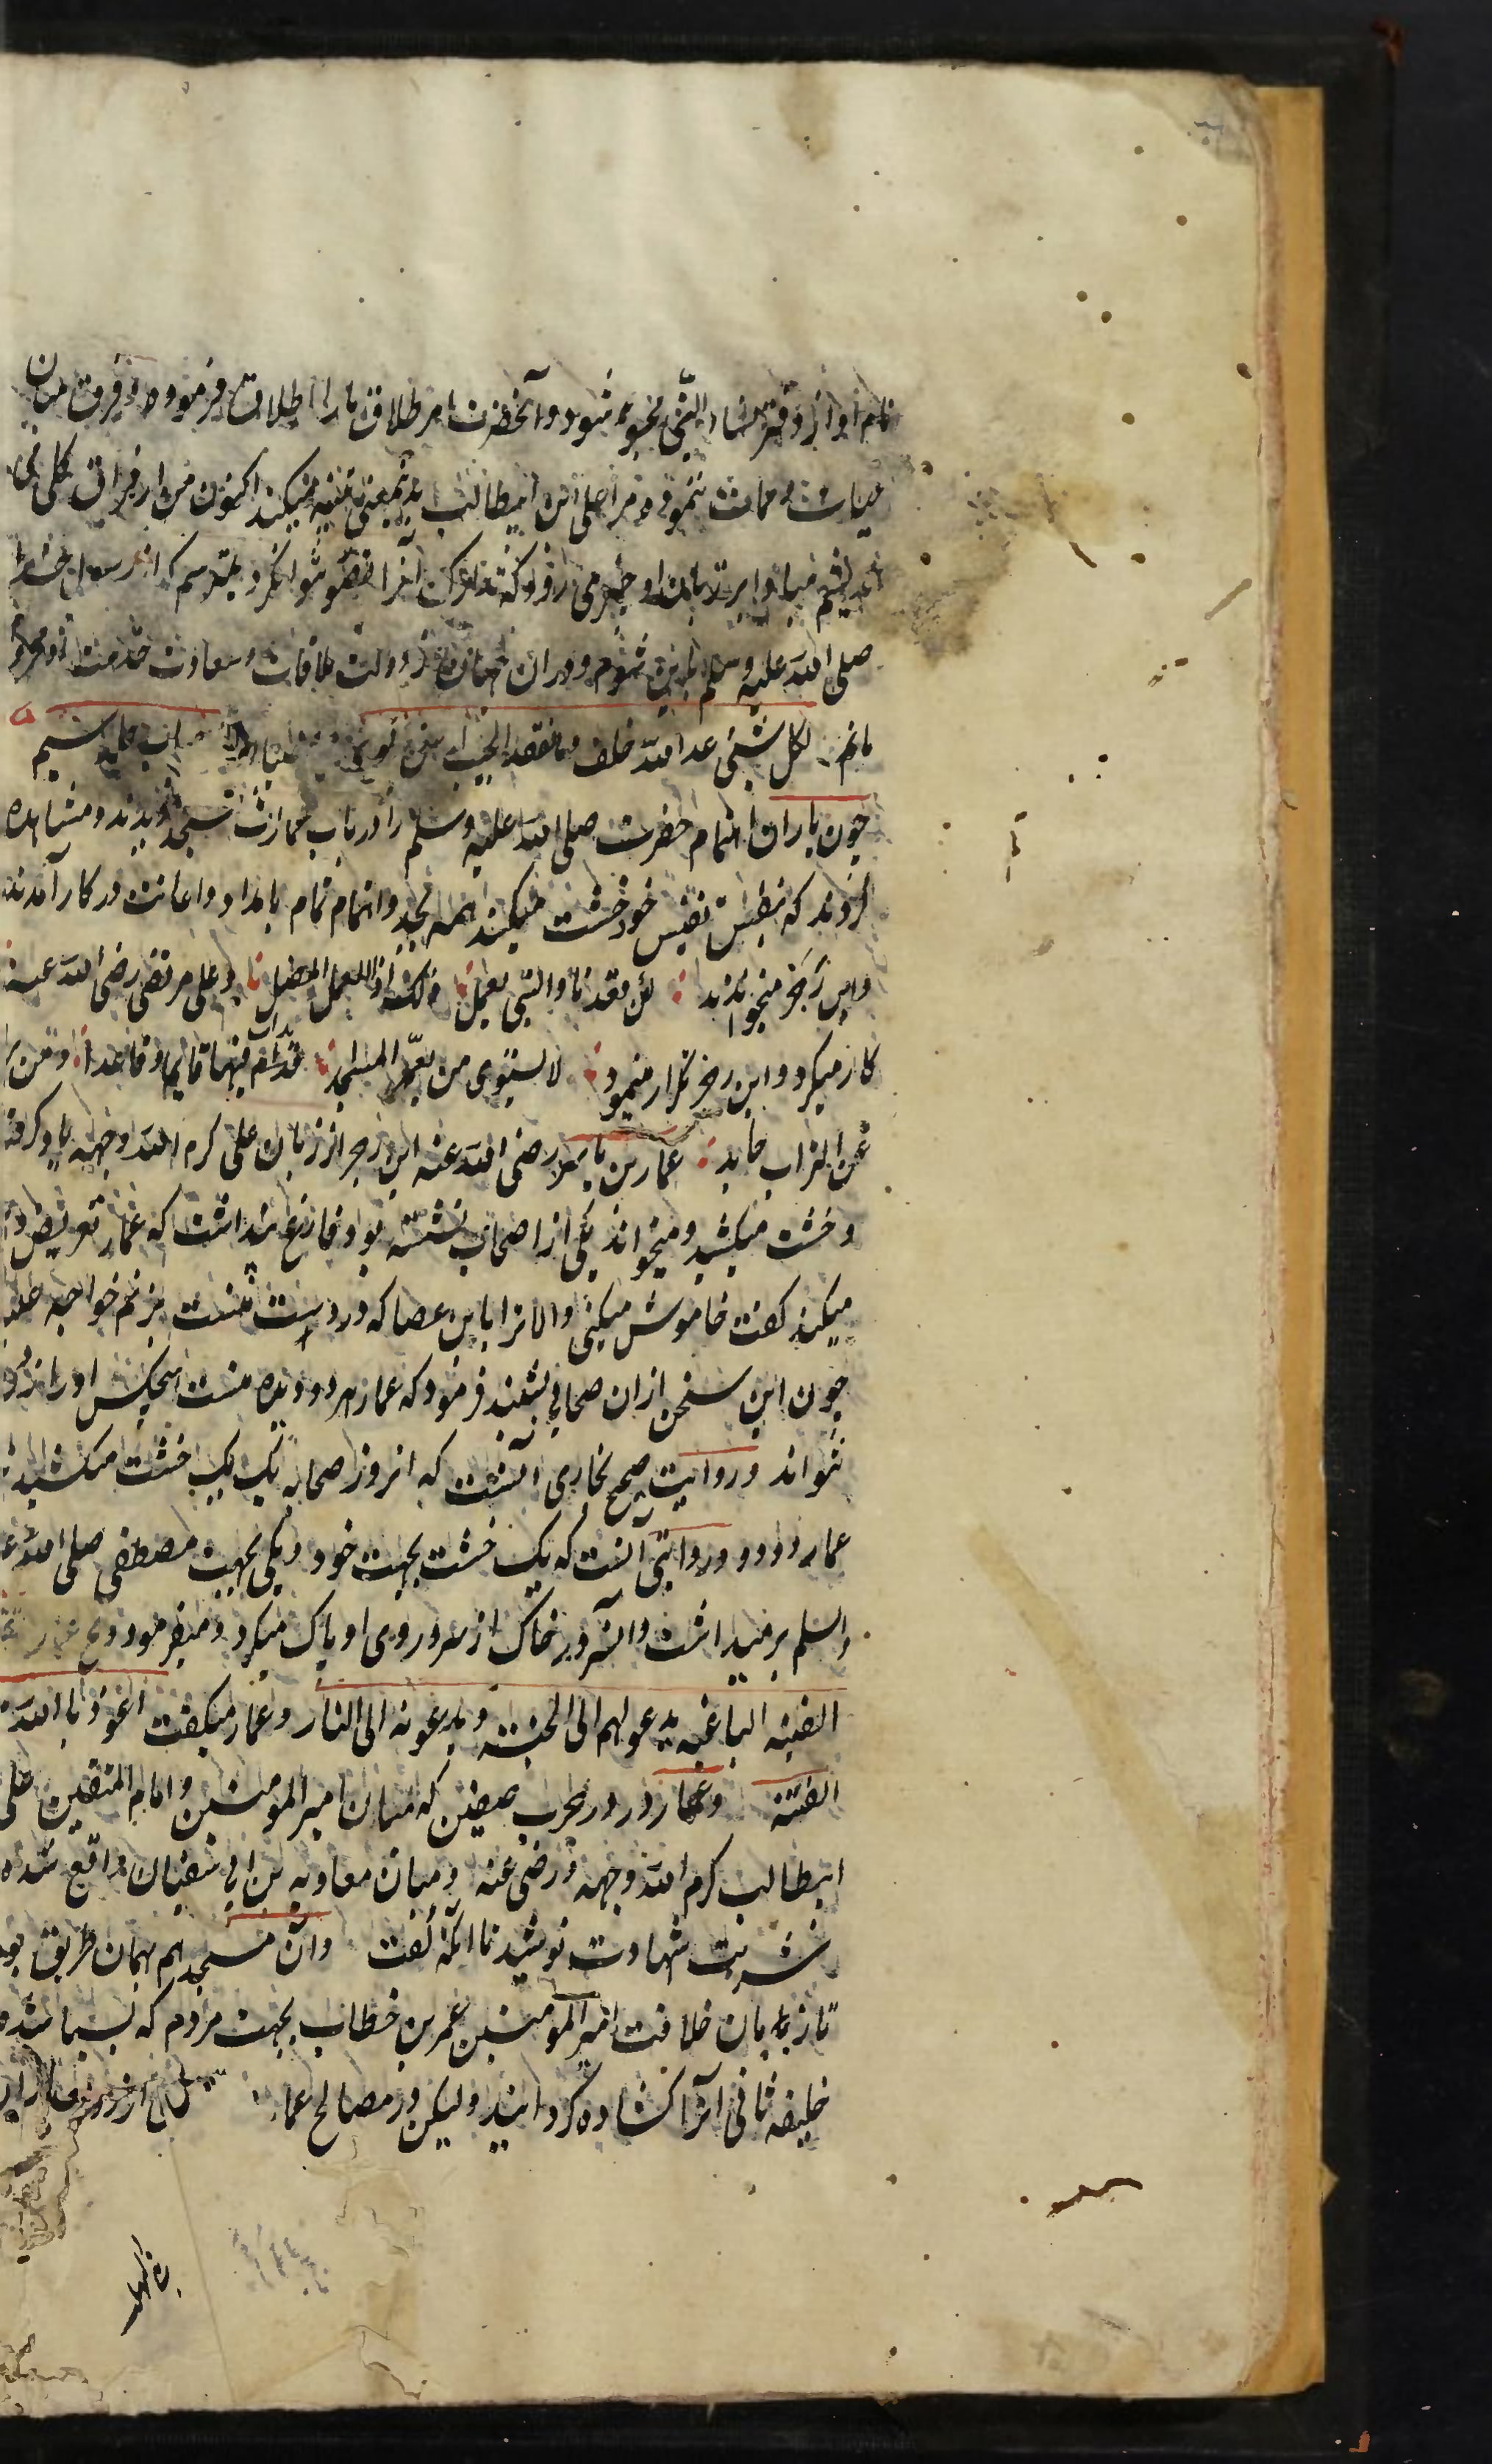 نام او از دفتر نساء النبی محو شود و آنحضرت امر طلاق یارا اطلاق فرمود و فرق میان
حیات و ممات ننمود و مرا علی ابن ابیطالب بدین معنی تنبیه میکند اکنون من از فراق کلی می
اندیشم مبادا بر زبان او جاری رود که تدارک آنرا تصور نتوان کرد میترسم که از رسول خدا
صلی الله علیه وسلم باین شوم و در ان جهان از دولت ملاقات و سعادت خدمت او محروم
مانم لکل شیئ عدا الله خلف وما لفقد الحبیب من
چون یاران اهتمام حضرت صلی الله علیه وسلم را در باب عمارت مسجد دیدند و مشاهده
کردند که بنفس نفیس خود خشت میکشند همه بجد و اتمام تمام بامداد و اعانت در کار آمدند
و این رجز میخواندند لئن قعدنا والنبی یعمل ذلک اذا للعمل المضلل و علی مرتضی رضی الله عنه
کار میکرد و این رجز تکرار مینمود لا یستوی من یعمر المساجد یدأب فیها قایما و قاعدا و من یری
عن التراب حاید عمار بن یاسر رضی الله عنه این رجز از زبان علی کرم الله وجهه یاد گرفته
و خشت میکشید و میخواند یکی از اصحاب نشسته بود فارغ پنداشت که عمار تعریض او
میکند گفت خاموش میکنی و الا ترا باین عصا که در دست منست بزنم خواجه علیه
چون این سخن ازان صحابی بشنید فرمود که عمار هر دو دیده منست هیچکس او را نزد
نتواند و روایت صحیح بخاری آنست که آنروز صحابه یک یک خشت میکشیدند
عمار دو دو و روایتی آنست که یک خشت بجهت خود و یکی بجهت مصطفی صلی الله علیه
واسلم برمیداشت و آنسرور خاک از سر و روی او پاک میکرد و میفرمود ویح عمار
الفئیه الباغیه یدعوهم الی الجنه و یدعونه الی النار و عمار میگفت اعوذ با الله من
الفتنه و عمار در در حرب صفین که میان امیر المومنین و امام المتقین علی
ابیطالب کرم الله وجهه و رضی عنه و میان معاویه بن ابی سفیان واقع شده
شربت شهادت نوشید نا انکه گفت و ان مسجد هم بهمان طریق بود
تا زمان خلافت امیر المومنین عمر بن خطاب بجهت مردم که بسیار شده
خلیفه ثانی آنرا کشاده گردانید ولیکن در مصالح عمار